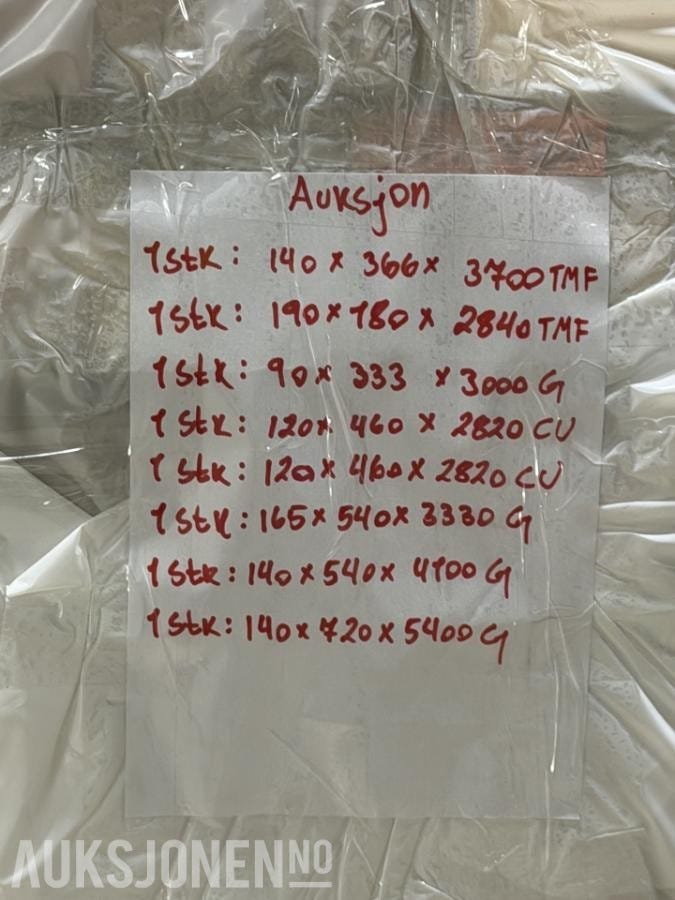 Auksjon
1stk: 140 x 366 x 3700 TMF
1stk: 190 x 180 x 2840 TMF
1stk: 90 x 333 x 3000 G
1stk: 120 x 460 x 2820 CU
1stk: 120 x 460 x 2820 CU
1stk: 165 x 540 x 3330 G
1stk: 140 x 540 x 4100 G
1stk: 140 x 720 x 5400 G
AUKSJONEN NO